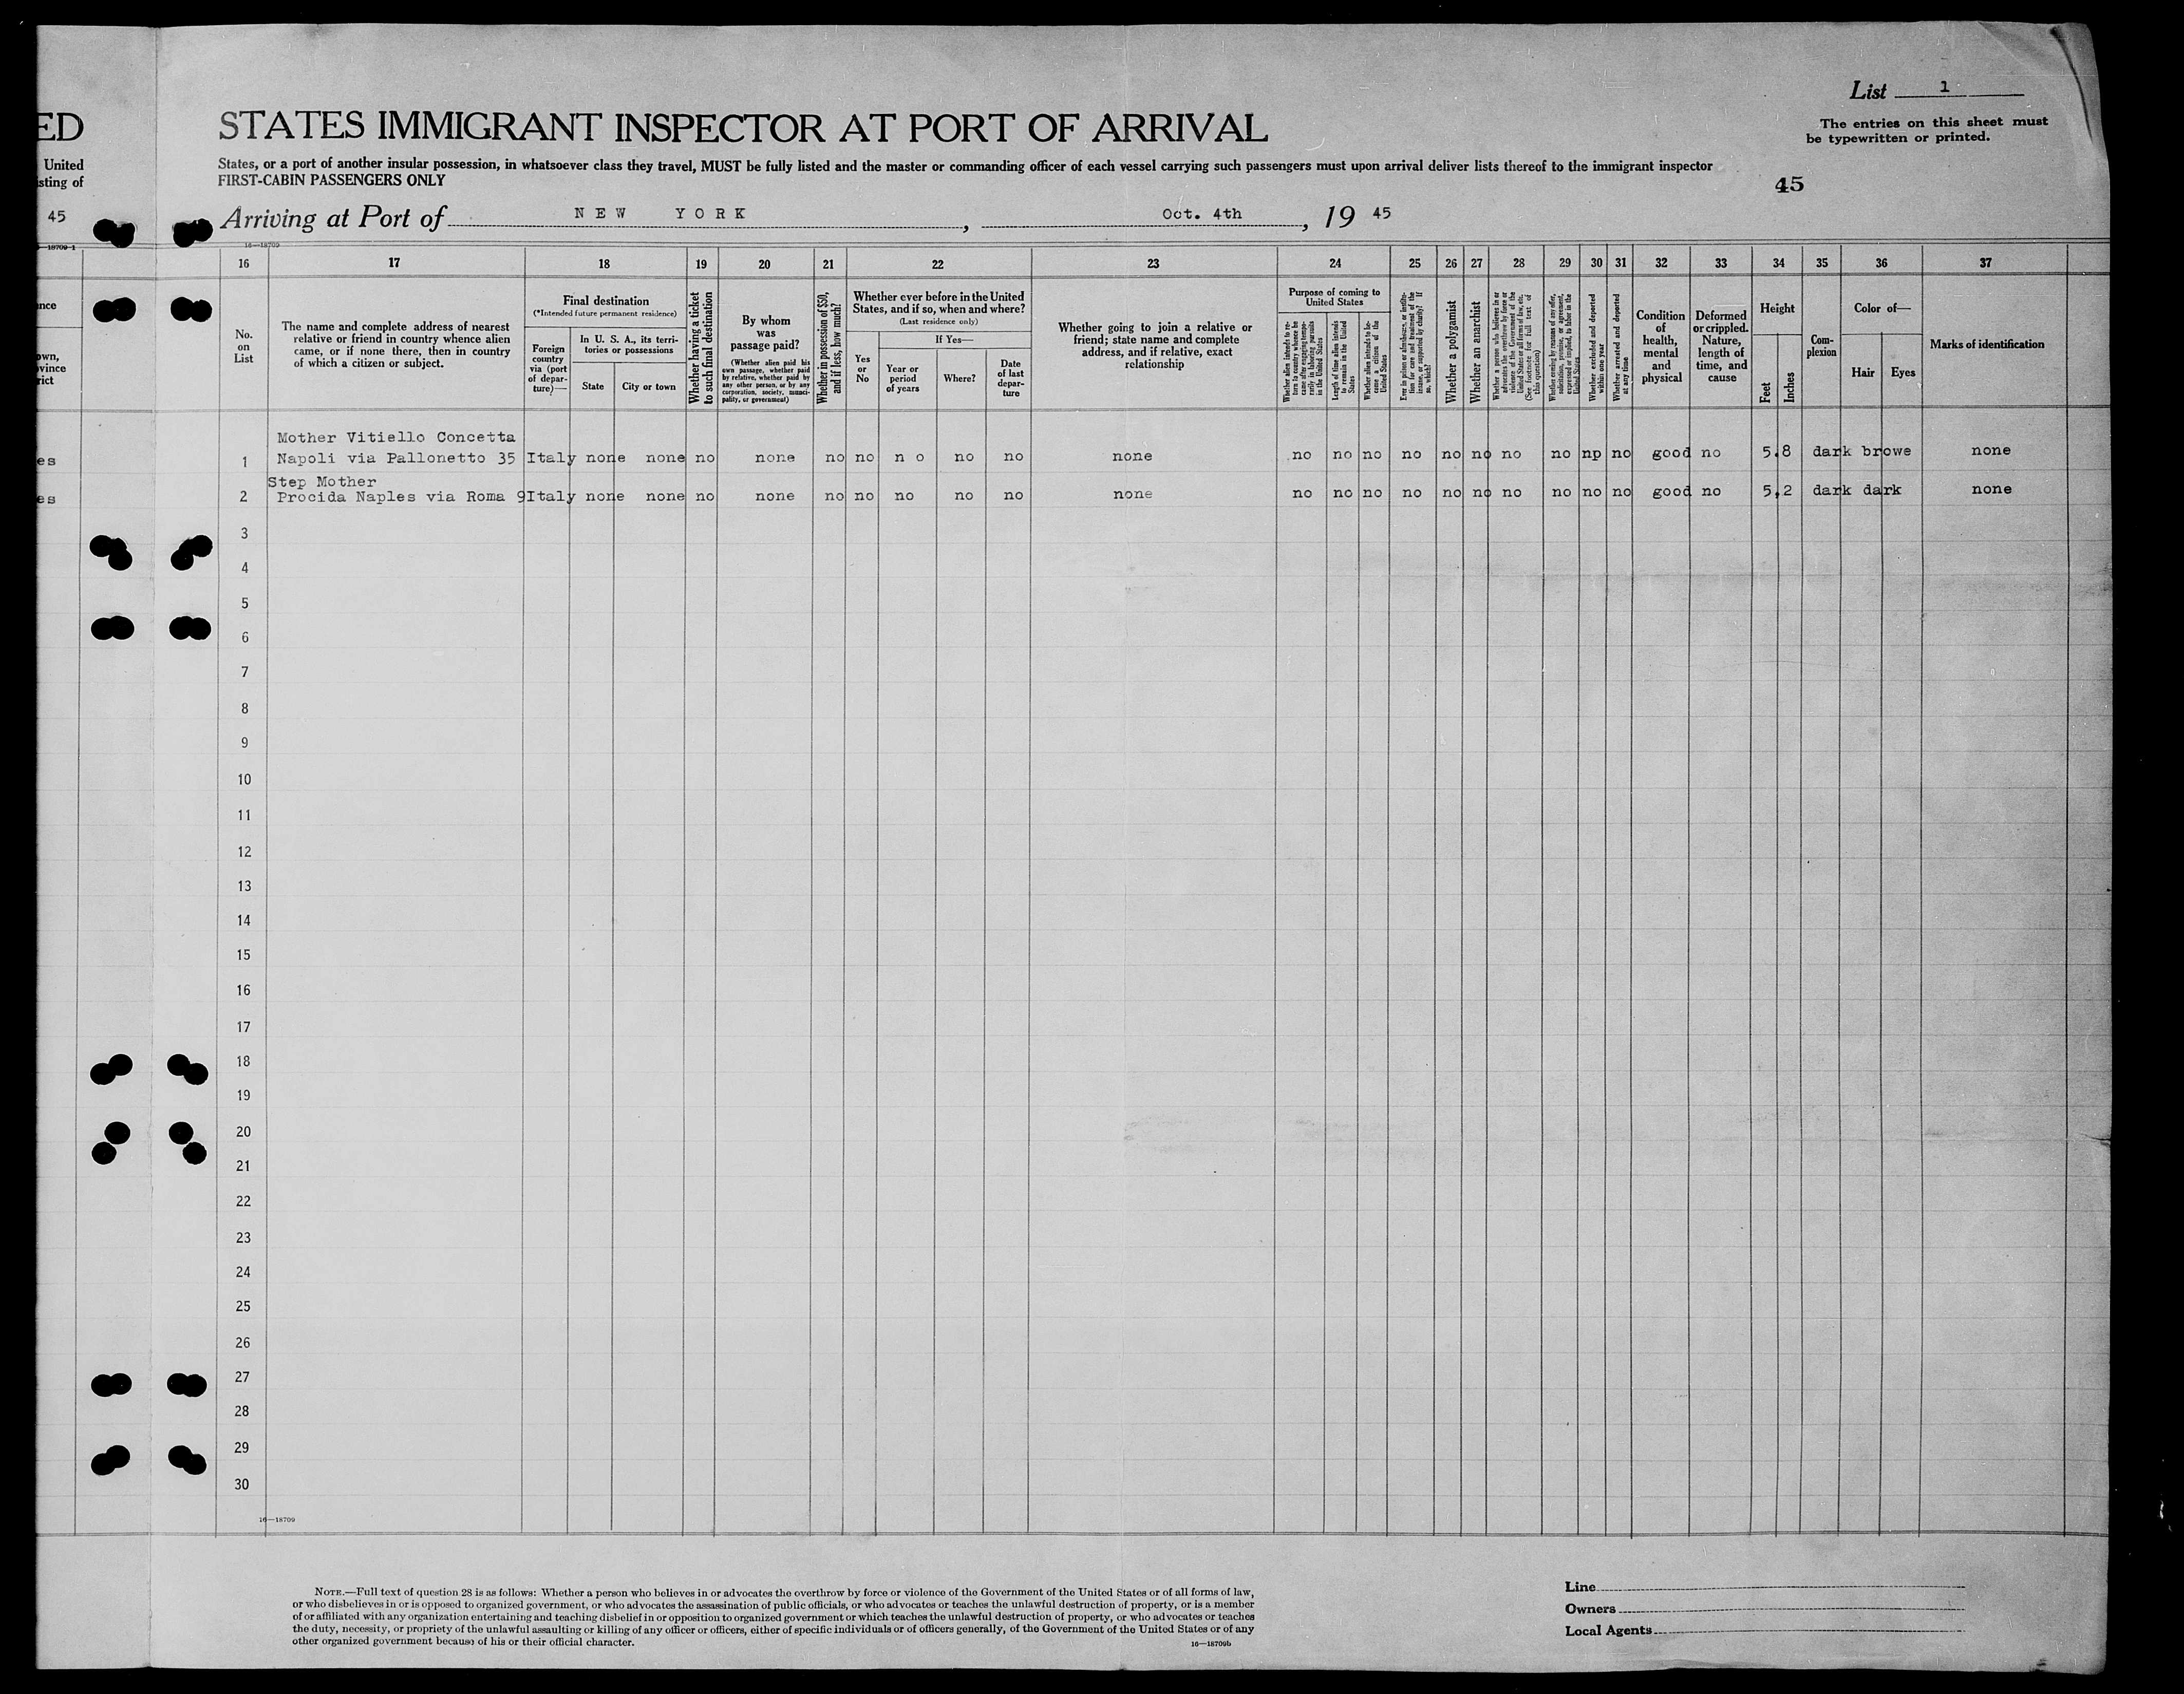 List 1
The entries on this sheet must
be typewritten or printed.
ED
STATES IMMIGRANT INSPECTOR AT PORT OF ARRIVAL
United
sting of
States, or a port of another insular possession, in whatsoever class they travel, MUST be fully listed and the master or commanding officer of each vessel carrying such passengers must upon arrival deliver lists thereof to the immigrant inspector
FIRST-CABIN PASSENGERS ONLY
45
45
Arriving at Port of NEW YORK, Oct. 4th, 19 45
18709-1
16—18709
16 17 18 19 20 21 22 23 24 25 26 27 28 29 30 31 32 33 34 35 36 37
nce
own,
vince
rict
No.
on
List
The name and complete address of nearest
relative or friend in country whence alien
came, or if none there, then in country
of which a citizen or subject.
Final destination
(*Intended future permanent residence)
Foreign
country
via (port
of depar-
ture)—
In U. S. A., its terri-
tories or possessions
State
City or town
Whether having a ticket
to such final destination
By whom
was
passage paid?
(Whether alien paid his
own passage, whether paid
by relative, whether paid by
any other person, or by any
corporation, society, munici-
pality, or government)
Whether in possession of $50,
and if less, how much?
Whether ever before in the United
States, and if so, when and where?
(Last residence only)
Yes
or
No
If Yes—
Year or
period
of years
Where?
Date
of last
depar-
ture
Whether going to join a relative or
friend; state name and complete
address, and if relative, exact
relationship
Purpose of coming to
United States
Whether alien intends to re-
turn to country whence he
came after engaging tempo-
rarily in laboring pursuits
in the United States
Length of time alien intends
to remain in the United
States
Whether alien intends to be-
come a citizen of the
United States
Ever in prison or almshouse, or institu-
tion for care and treatment of the
insane, or supported by charity? If
so, which?
Whether a polygamist
Whether an anarchist
Whether a person who believes in or
advocates the overthrow by force or
violence of the Government of the
United States or all forms of law, etc.
(See footnote for full text of
this question)
Whether coming by reasons of any offer,
solicitation, promise, or agreement,
expressed or implied, to labor in the
United States
Whether excluded and deported
within one year
Whether arrested and deported
at any time
Condition
of
health,
mental
and
physical
Deformed
or crippled.
Nature,
length of
time, and
cause
Height
Feet
Inches
Com-
plexion
Color of—
Hair
Eyes
Marks of identification
Mother Vitiello Concetta
es 1 Napoli via Pallonetto 35 Italy none none no none no no n o no no none no no no no no no no no np no good no 5.8 dark browe none
Step Mother
es 2 Procida Naples via Roma 9 Italy none none no none no no no no no none no no no no no no no no no no good no 5,2 dark dark none
3
4
5
6
7
8
9
10
11
12
13
14
15
16
17
18
19
20
21
22
23
24
25
26
27
28
29
30
16—18709
NOTE.—Full text of question 28 is as follows: Whether a person who believes in or advocates the overthrow by force or violence of the Government of the United States or of all forms of law,
or who disbelieves in or is opposed to organized government, or who advocates the assassination of public officials, or who advocates or teaches the unlawful destruction of property, or is a member
of or affiliated with any organization entertaining and teaching disbelief in or opposition to organized government or which teaches the unlawful destruction of property, or who advocates or teaches
the duty, necessity, or propriety of the unlawful assaulting or killing of any officer or officers, either of specific individuals or of officers generally, of the Government of the United States or of any
other organized government because of his or their official character.
16—18709b
Line
Owners
Local Agents